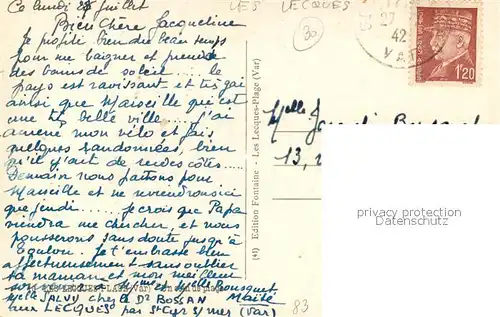 Ce lundi 27 juillet
Bien chère Jacqueline
Je profite bien du beau temps
pour me baigner et prendre
des bains de soleil..... le
pays est ravissant et très gai
ainsi que Marseille qui est
une très belle ville...... j'ai
amené mon vélo et fais
quelques randonnées, bien
qu'il y ait de rudes côtes.....
Demain nous partons pour
Marseille et ne reviendrons ici
que jeudi...... je crois que Papa
viendra me chercher, et nous
pousserons sans doute jusqu'à
Toulon. Je t'embrasse bien
affectueusement sans oublier
ta maman et mon meilleur
Mme et Melle Bousquet
Melle SALVY chez le Dr BOSSAN Maïté
aux LECQUES par St Cyr s/mer (Var)
LES LECQUES
30
27
42
VAR
1F20
(41) Edition Fontaine - Les Lecques-Plage (Var)
Melle
13,
privacy protection
protection des données
83